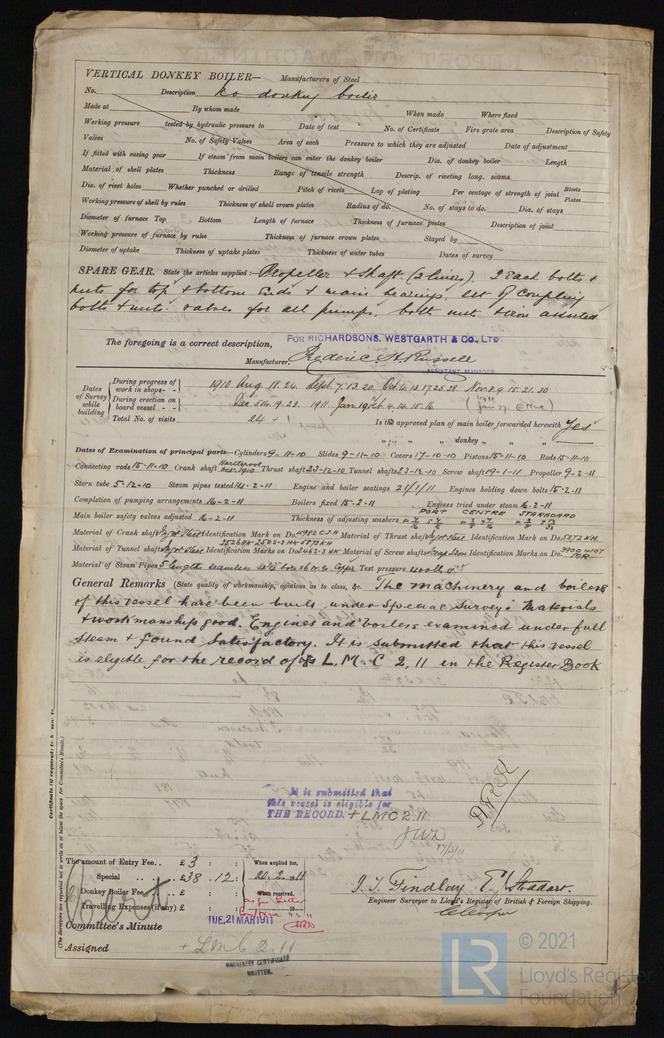 VERTICAL DONKEY BOILER— Manufacturers of Steel
No. Description No donkey boiler
Made at By whom made When made Where fixed
Working pressure tested by hydraulic pressure to Date of test No. of Certificate Fire grate area Description of Safety
Valves No. of Safety Valves Area of each Pressure to which they are adjusted Date of adjustment
If fitted with easing gear If steam from main boilers can enter the donkey boiler Dia. of donkey boiler Length
Material of shell plates Thickness Range of tensile strength Descrip. of riveting long. seams
Dia. of rivet holes Whether punched or drilled Pitch of rivets Lap of plating Per centage of strength of joint Rivets Plates
Working pressure of shell by rules Thickness of shell crown plates Radius of do. No. of stays to do. Dia. of stays
Diameter of furnace Top Bottom Length of furnace Thickness of furnace plates Description of joint
Working pressure of furnace by rules Thickness of furnace crown plates Stayed by
Diameter of uptake Thickness of uptake plates Thickness of water tubes Dates of survey
SPARE GEAR. State the articles supplied:— Propeller & Shaft (2 liners). 2 Each bolts &
nuts for top & bottom Ends & main bearings, set of Coupling
bolts & nuts. valves for all pumps. bolts nuts & iron assorted
FOR RICHARDSONS, WESTGARTH & CO., LTD
The foregoing is a correct description,
Manufacturer. Frederic. H. Russell
ASSISTANT MANAGER
Dates of Survey while building
During progress of work in shops - - 1910 Aug. 18. 24. Sept. 7. 13. 20. Oct. 4. 13. 17. 25. 28 Nov. 8. 9. 15. 21. 30
During erection on board vessel - - - Dec. 5. 14. 19. 23. 1911 Jan. 19 Feb. 4. 14. 15. 16
Total No. of visits 24 + 1 Is the approved plan of main boiler forwarded herewith Yes
" " " donkey " " "
Dates of Examination of principal parts—Cylinders 9-11-10 Slides 9-11-10 Covers 17-10-10 Pistons 15-11-10 Rods 15-11-10
Connecting rods 15-11-10 Crank shaft Hartlepool Oct. 1910 Thrust shaft 23-12-10 Tunnel shafts 23-12-10 Screw shaft 19-1-11 Propeller 9-2-11
Stern tube 5-12-10 Steam pipes tested 14-2-11 Engine and boiler seatings 21/1/11 Engines holding down bolts 15-2-11
Completion of pumping arrangements 16-2-11 Boilers fixed 15-2-11 Engines tried under steam 16-2-11
PORT CENTRE STARBOARD
Main boiler safety valves adjusted 16-2-11 Thickness of adjusting washers
Material of Crank shaft Ingot Steel Identification Mark on Do. 4982 CJH Material of Thrust shaft Ingot Steel Identification Mark on Do. 5872 KH
Material of Tunnel shafts Ingot Steel Identification Marks on Do. 3462-2 HK Material of Screw shafts Ingot Steel Identification Marks on Do.
Material of Steam Pipes 5 lengths seamless Copper Test pressure 400 lbs
General Remarks (State quality of workmanship, opinions as to class, &c. The machinery and boilers
of this vessel have been built under Special Survey: Materials
& workmanship good. Engines and boilers examined under full
steam & found satisfactory. It is submitted that this vessel
is eligible for the record of L.M.C 2,11 in the Register Book
Certificate (if required) to be sent to
(The Surveyors are requested not to write on or below the space for Committee's Minute.)
It is submitted that
this vessel is eligible for
THE RECORD. + LMC 2.11
The amount of Entry Fee .. £ 3 : : When applied for,
Special .. .. £38 . 12 : 20.2.1911
Donkey Boiler Fee .. .. £ : : When received,
Travelling Expenses (if any) £ : :
J. T. Findlay E. J. Stoddart.
Engineer Surveyor to Lloyd's Register of British & Foreign Shipping.
Committee's Minute TUE. 21 MAR 1911
Assigned + LMC 2.11
MACHINERY CERTIFICATE
WRITTEN.
© 2021
LR
Lloyd's Register
Foundation